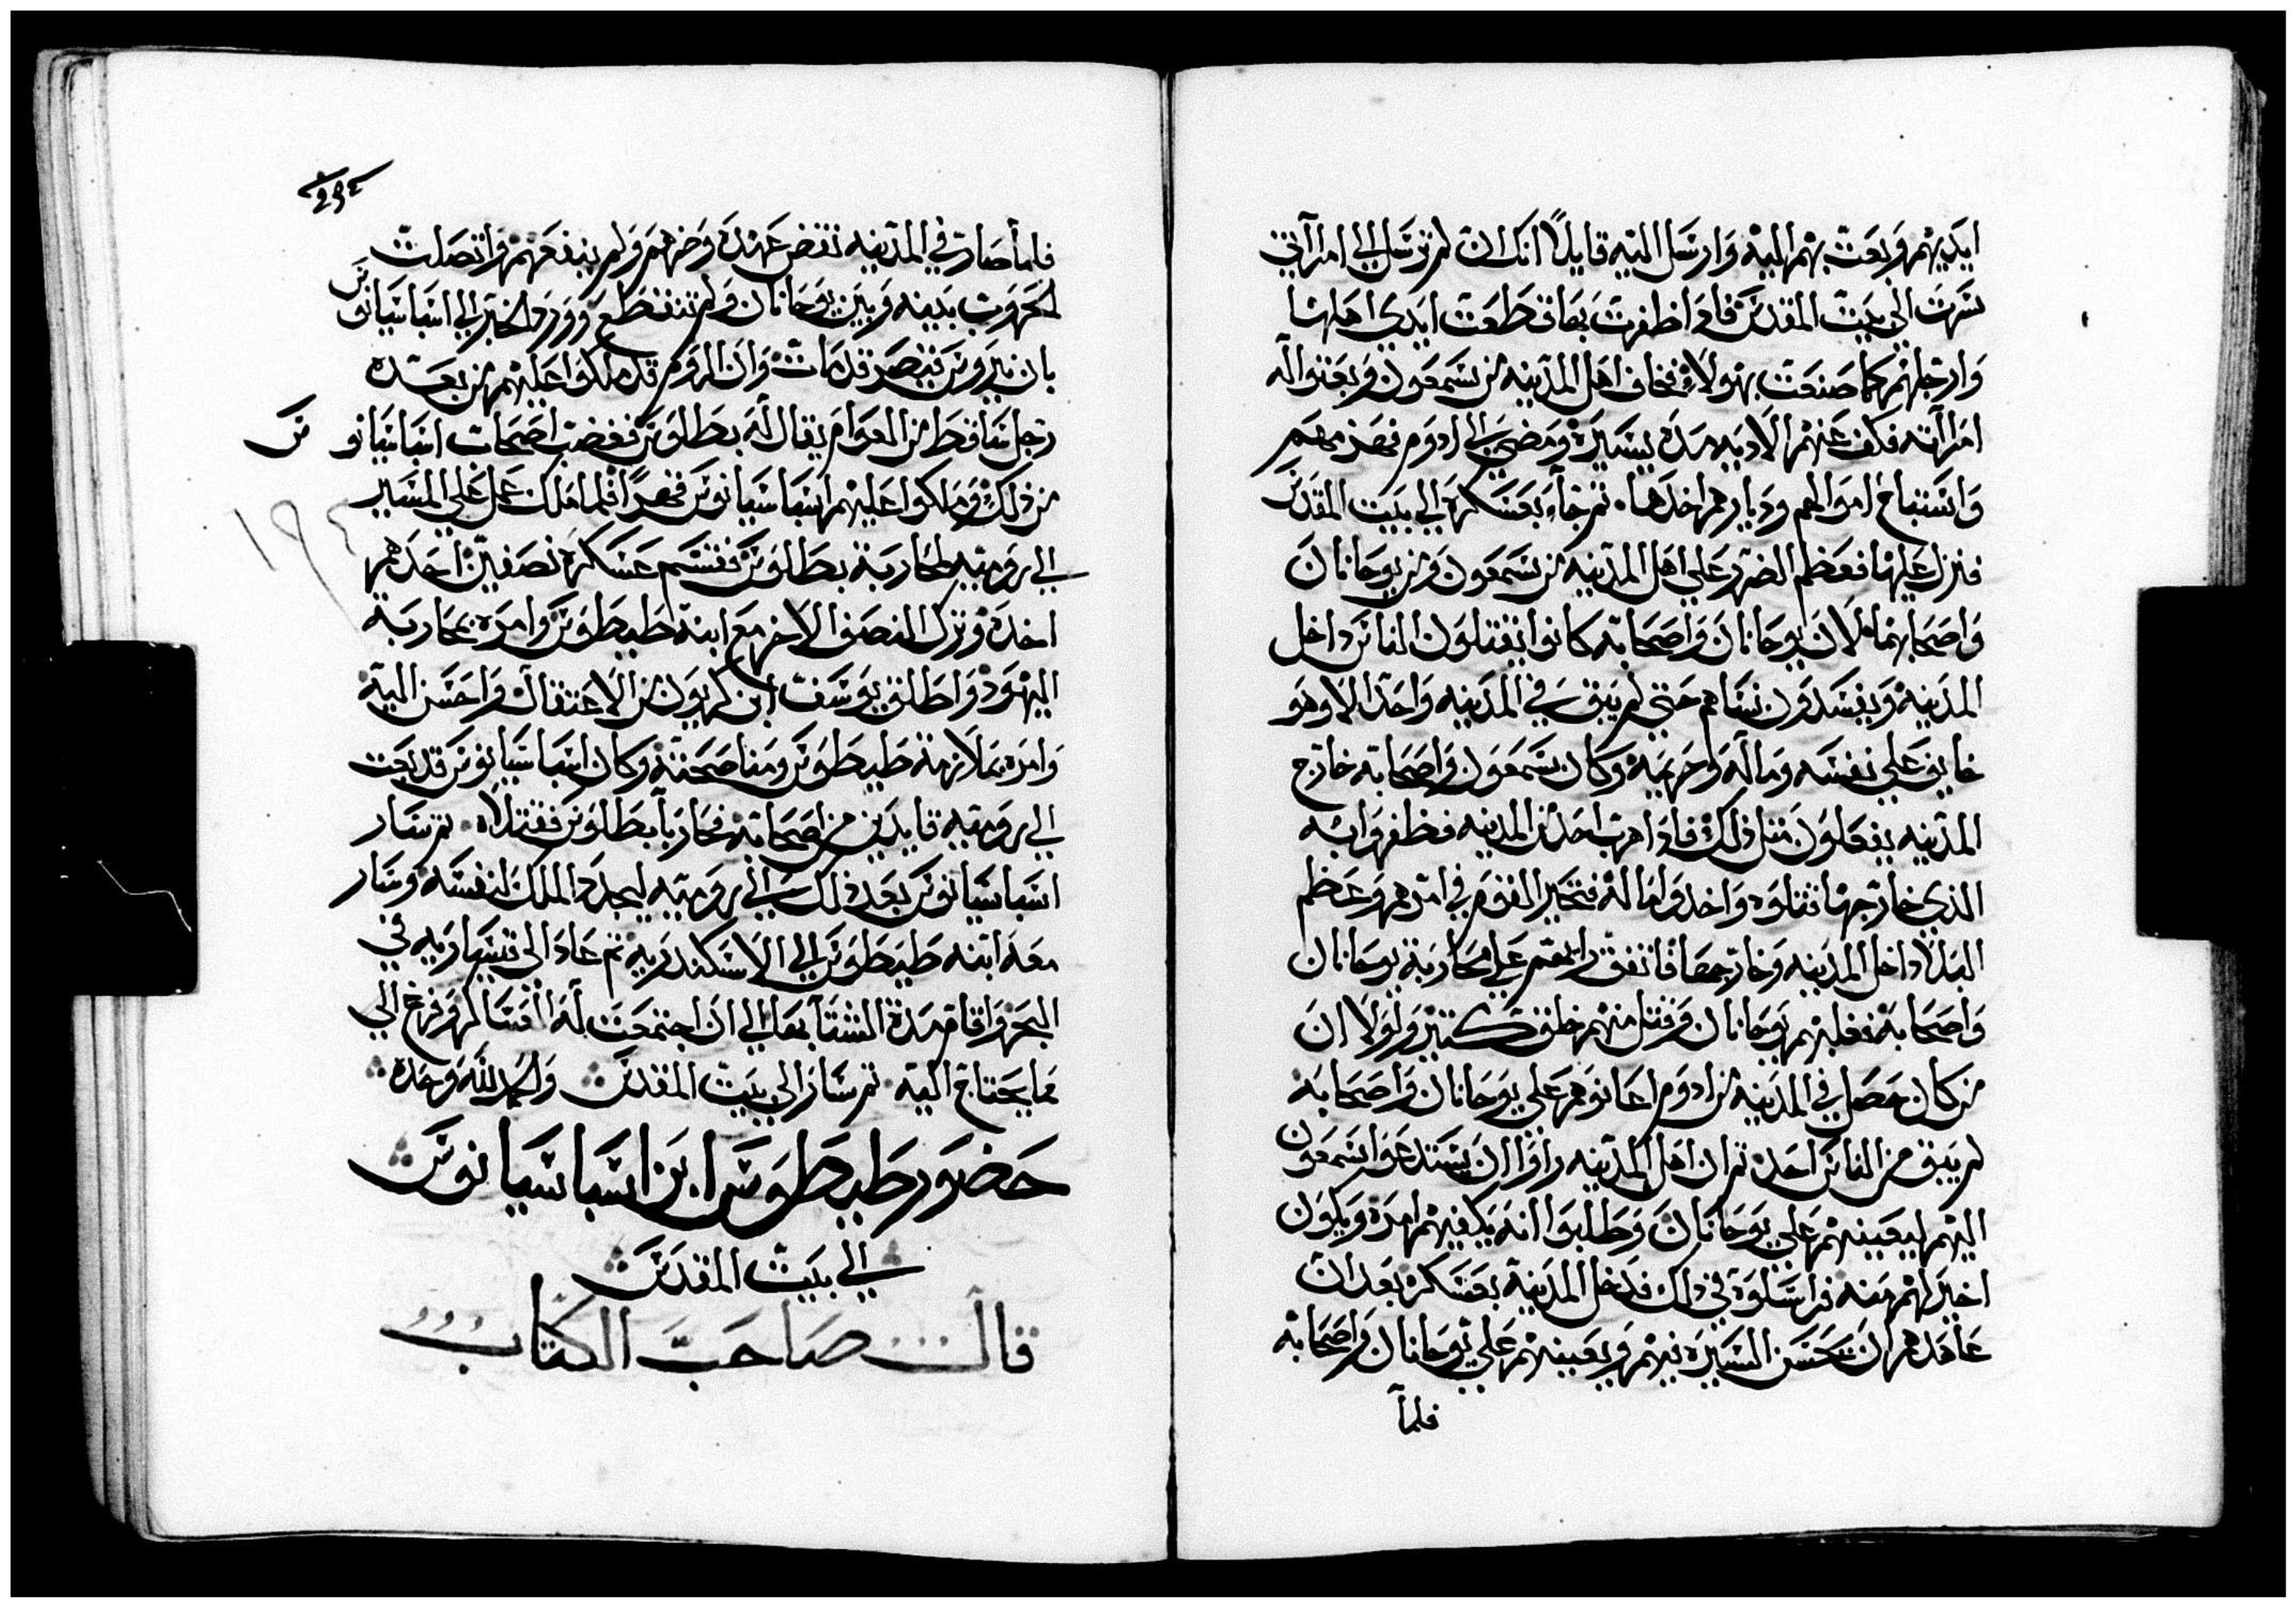 ايديهم وبعث بهم اليه وارسل اليه قايلاً انك ان لم ترسل الي امراتي
سرت الي بيت المقدس فاذا ظفرت بها قطعت ايدي اهلها
وارجلهم كما صنعت بهولاء فخاف اهل المدينه من سمعون وبعثوا له
امراته فكف عنهم الاديه مده يسيره ومضي الي ادوم فنهب منهم
واستباح اموالهم وديارهم اخدها ثم جاء بعسكره الي بيت المقدس
فنزل عليها فعظم الضرر علي اهل المدينه من سمعون ومن يوحانان
واصحابهما لان يوحانان واصحابه كانوا يقتلون الناس داخل
المدينه ويفسدون نساهم حتي لم يبق في المدينه واحد الا وهو
خايف علي نفسه وماله وحريمه وكان سمعون واصحابه خارج
المدينه يفعلون مثل ذلك فاذا هرب احد من المدينه فظفروا به
الذي خارجها قتلوه واخدوا ماله فتحير القوم في امرهم وعظم
البلا داخل المدينه وخارجها فاتفق رايهم علي محاربة يوحانان
واصحابه فغلبهم يوحانان وقتل منهم خلق كثير ولولا ان
من كان حصل في المدينه من ادوم اعانوهم علي يوحانان واصحابه
لم يبق من الناس احد ثم ان اهل المدينه راوا ان يستدعوا سمعون
اليهم ليعينهم علي يوحانان وطلبوا انه يكفيهم امره ويكون
اخير لهم منه فراسلوه في ذلك فدخل المدينة بعسكره بعد ان
عاهدهم ان يحسن السيره فيهم ويعينهم علي يوحانان واصحابه
فلما
فلما صار في المدينه نقض عهده وضرهم ولم ينفعهم واتصلت
الحروب بينه وبين يوحانان ولم تنقطع وورد الخبر الي اسباسيانوس
بان نيروس قيصر قد مات وان الروم قد ملكوا عليهم من بعده
رجل ساقط من العوام يقال له بطالوس فغضب اصحاب اسباسيانوس
من ذلك وملكوا عليهم اسباسيانوس قهرًا فلما ملك عمل علي المسير
الي روميه لمحاربة بطالوس فقسم عسكره نصفين احدهم
١٩٤
اخده وترك النصف الاخر مع ابنه طيطوس وامره بمحاربة
اليهود واطلق يوسف ابن كريون من الاعتقال واحسن اليه
وامره بملازمة طيطوس ومناصحته وكان اسباسيانوس قد بعث
الي روميه قايدين من اصحابه فحاربا بطالوس فقتلاه ثم سار
اسباسيانوس بعد ذلك الي روميه ليجدد الملك لنفسه وسار
معه ابنه طيطوس الي الاسكندريه ثم عاد الي قيساريه في
البحر واقام مدة الشتا بها الي ان اجتمعت له العساكر وفرغ الي
ما يحتاج اليه ثم سار الي بيت المقدس والحمد لله وحده
حضور طيطوس ابن اسباسيانوس
الي بيت المقدس
قال صاحب الكتاب